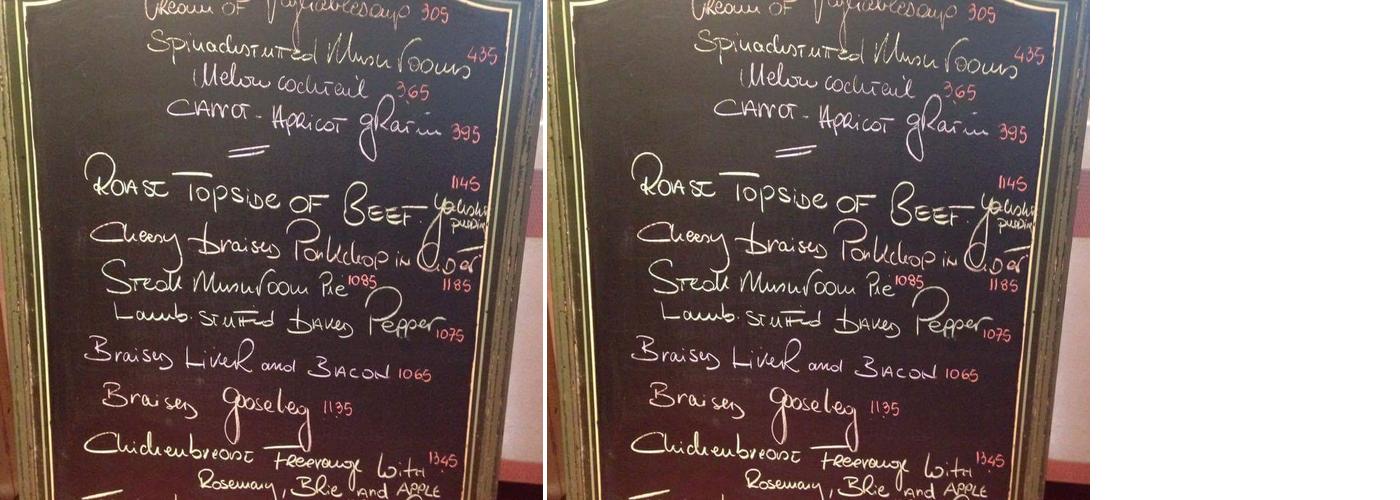 Cream of Vegetablesoup 305
Spinachstuffed Mushrooms 435
Melon cocktail 365
Carrot - Apricot gratin 395
Roast Topside of Beef. 1145
Cheesy braised Porkchop in Cider 1185
Steak Mushroom Pie 1085
Lamb. stuffed baked Pepper 1075
Braised Liver and Bacon 1065
Braised gooseleg 1135
Chickenbreast Freerange with 1345
Rosemary, Brie and Apple
Cream of Vegetablesoup 305
Spinachstuffed Mushrooms 435
Melon cocktail 365
Carrot - Apricot gratin 395
Roast Topside of Beef. 1145
Cheesy braised Porkchop in Cider 1185
Steak Mushroom Pie 1085
Lamb. stuffed baked Pepper 1075
Braised Liver and Bacon 1065
Braised gooseleg 1135
Chickenbreast Freerange with 1345
Rosemary, Brie and Apple